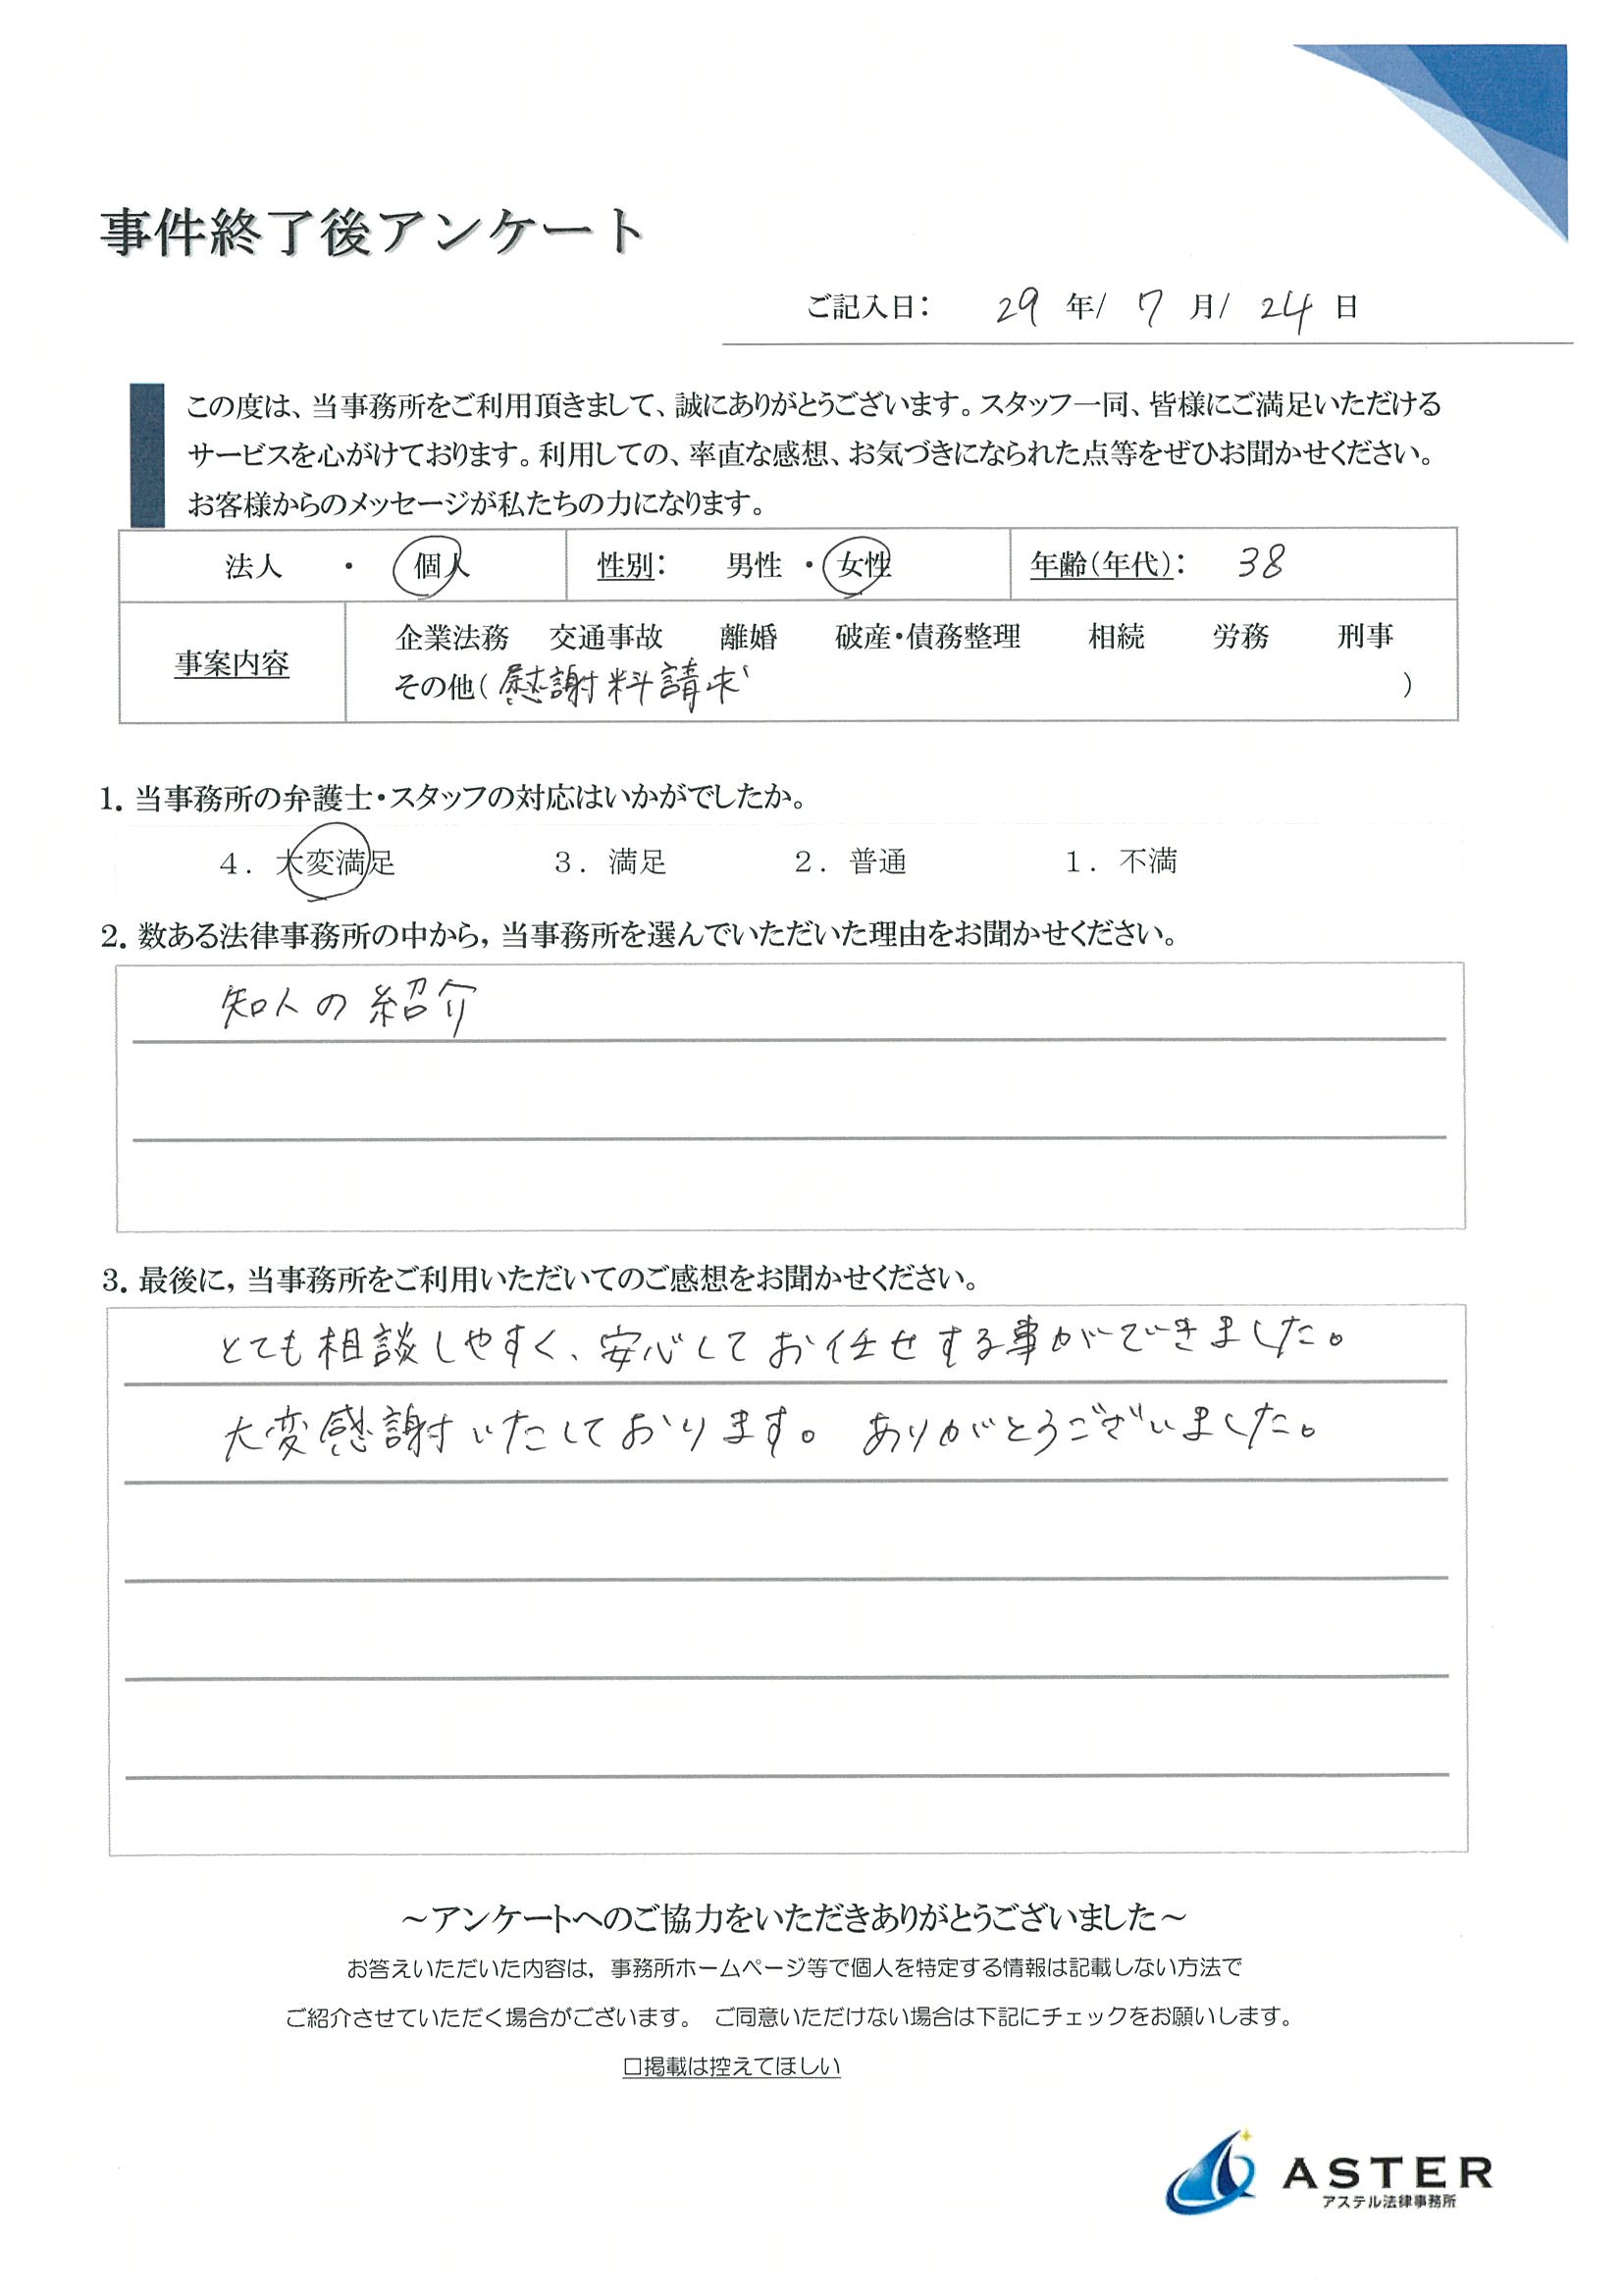 事件終了後アンケート
ご記入日： 29 年/ 7 月/ 24 日
この度は、当事務所をご利用頂きまして、誠にありがとうございます。スタッフ一同、皆様にご満足いただける
サービスを心がけております。利用しての、率直な感想、お気づきになられた点等をぜひお聞かせください。
お客様からのメッセージが私たちの力になります。
法人 ・ 個人 性別： 男性 ・ 女性 年齢(年代)： 38
事案内容 企業法務 交通事故 離婚 破産・債務整理 相続 労務 刑事
その他( 慰謝料請求 )
1. 当事務所の弁護士・スタッフの対応はいかがでしたか。
4. 大変満足 3. 満足 2. 普通 1. 不満
2. 数ある法律事務所の中から, 当事務所を選んでいただいた理由をお聞かせください。
知人の紹介
3. 最後に, 当事務所をご利用いただいてのご感想をお聞かせください。
とても相談しやすく、安心してお任せする事ができました。
大変感謝いたしております。 ありがとうございました。
～アンケートへのご協力をいただきありがとうございました～
お答えいただいた内容は, 事務所ホームページ等で個人を特定する情報は記載しない方法で
ご紹介させていただく場合がございます。 ご同意いただけない場合は下記にチェックをお願いします。
□掲載は控えてほしい
ASTER
アステル法律事務所